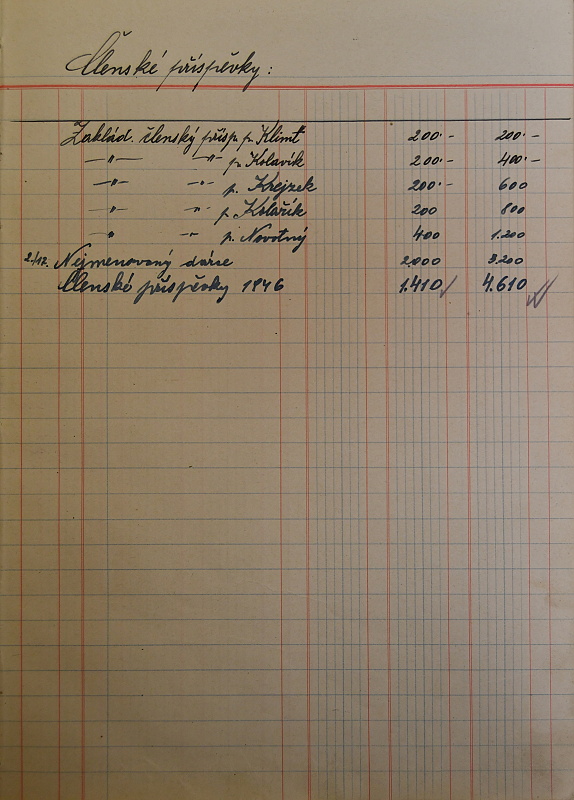 Členské příspěvky:
Zaklád. členský přísp. p. Klimt 200·- 200·-
-"- -"- p. Kolavík 200·- 400·-
-"- -"- p. Krejzek 200·- 600
-"- -"- p. Kolařík 200 800
-"- -"- p. Novotný 400 1.200
2./12. Nejmenovaný dárce 2.000 3.200
Členské příspěvky 1946 1.410 4.610